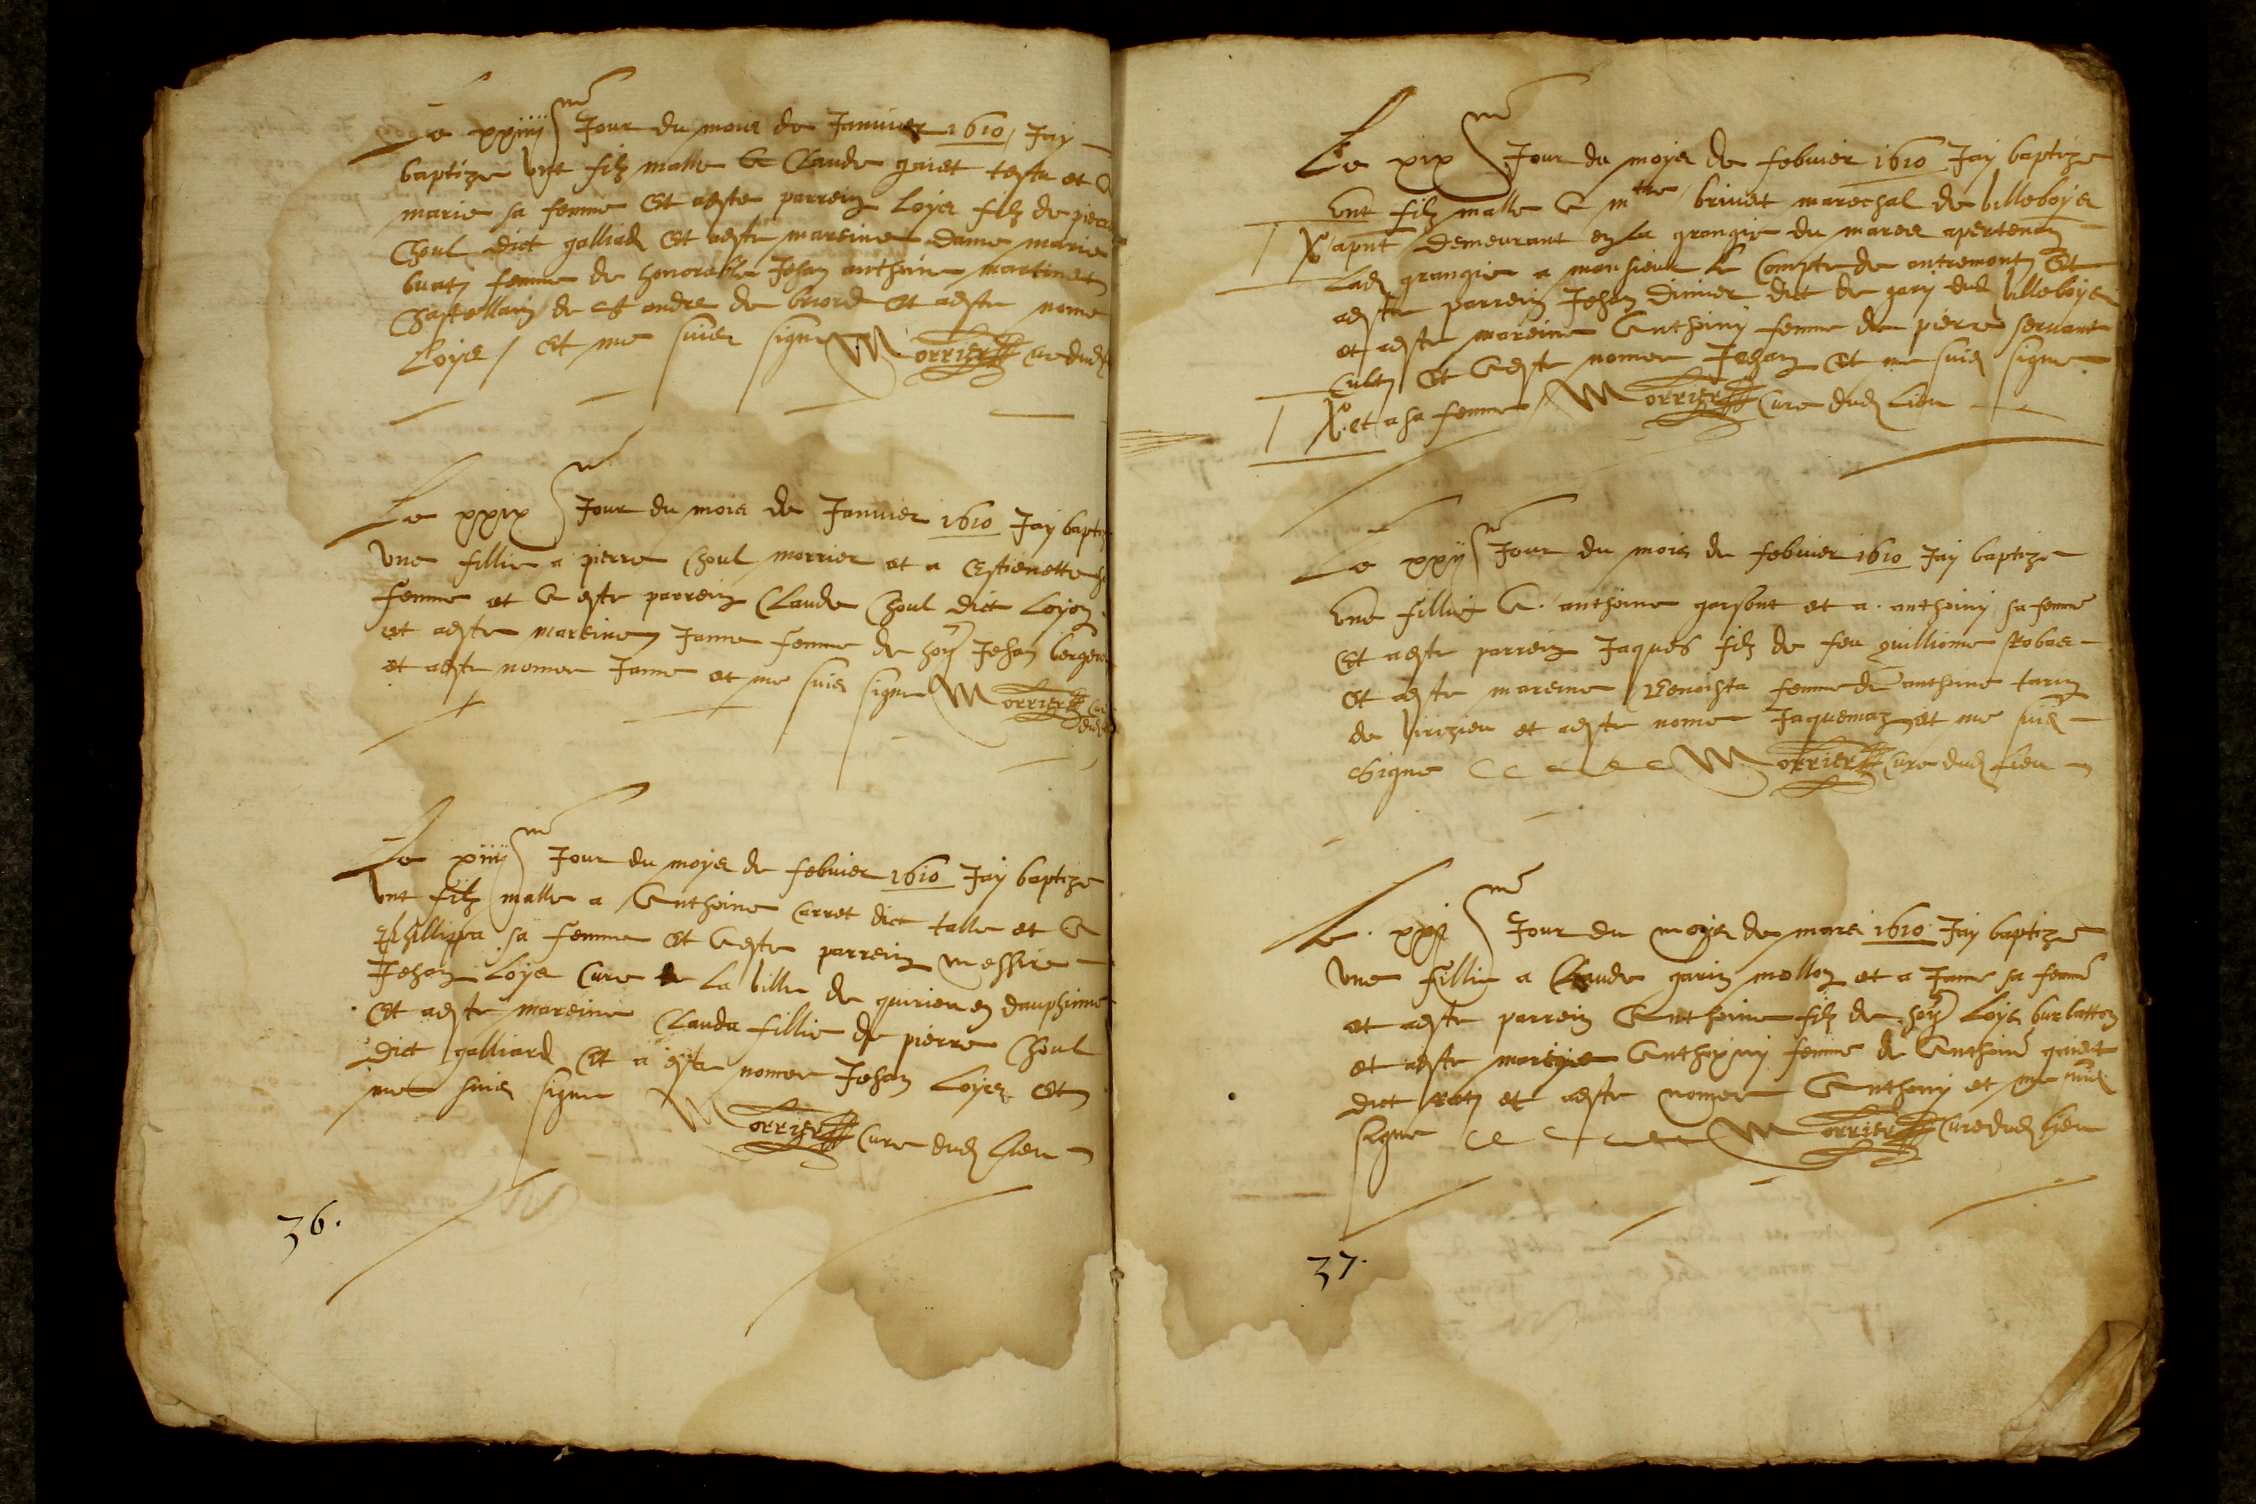 Le xxiiij me Jour du mois de Januier 1610 Jay
baptize vnt filz malle a Claude gaiet testu et a
marie sa femme Et aeste parrein Loys filz de pierre
Choul dict galliard Et aeste mareine dame marie
femme de honorable Jehan anthoine martinet
Chastellain de st andre de briord et aeste nome
Loys / et me suis signe Morrier Cure dud
Le xxix me Jour du mois de Januier 1610 Jay baptize
vne fillie a pierre Choul morrier et a Estienette sa
femme et a este parrein Claude Choul dict Loyon
et aeste mareine Janne femme de hon Jehan
et aeste nomee Janne et me suis signe Morrier Cure
dud
Le xiiij me Jour du moys de febuier 1610 Jay baptize
vnt filz malle a Anthoine Carret dict talle et a
phillippa sa femme Et a este parrein messire
Jehan Loys Cure de La ville de quirieu en dauphine
Et aeste mareine Clauda fillie de pierre Choul
dict galliard Et a este nomee Jehan Loys Et
me suis signe Morrier Cure dud Lieu
36.
Le xix me Jour du moys de febuier 1610 Jay baptize
vnt filz malle a mtre briuet marechal de villeboys
X apnt demeurant en la grangie du mares apertenan
Lad grangie a monsieur Le Compte de antremont Et
aeste parrein Jehan diuier dict de gary dud villeboys
et aeste mareine Anthoiny femme de pierre seruant
Et a este nomee Jehan Et me suis signe
X et a sa femme Morrier Cure dud Lieu
Le xxij me Jour du mois de febuier 1610 Jay baptize
vne fillie a anthoine garsont et a anthoiny sa femme
Et aeste parrein Jaques filz de feu guilliome Robas
Et aeste mareine Benoista femme de anthoine tarin
de virizieu et aeste nome Jaquemaz et me suis
signe Morrier Cure dud Lieu
Le xxj me Jour du moys de mars 1610 Jay baptize
vne fillie a Claude garin mollon et a Jane sa femme
et aeste parrein Anthoine filz de hon Loys burlatton
et aeste mareine Anthoyny femme de Anthoine gaiet
dict et aeste nomee Anthony et me suis
signe Morrier Cure dud Lieu
37.